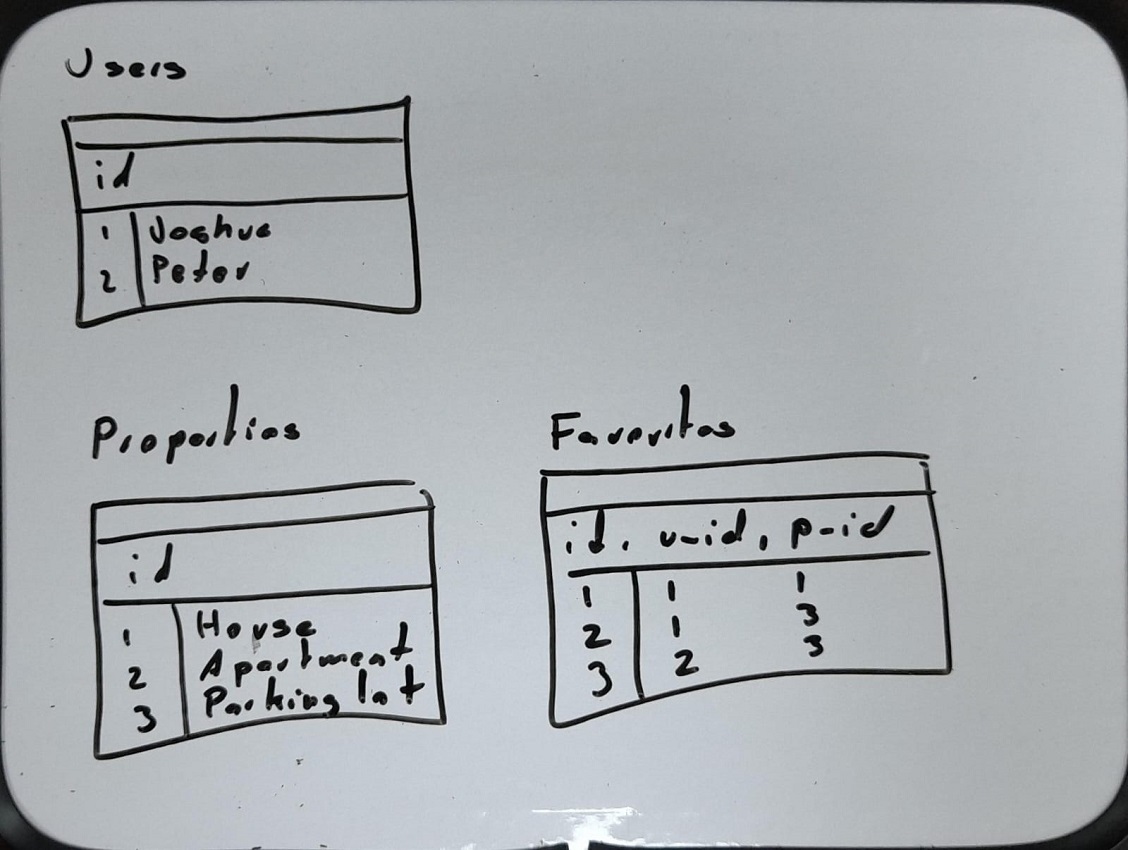 Users
id
1 Joshua
2 Peter
Properties
id
1 House
2 Apartment
3 Parking lot
Favorites
id, u-id, p-id
1 1 1
2 1 3
3 2 3